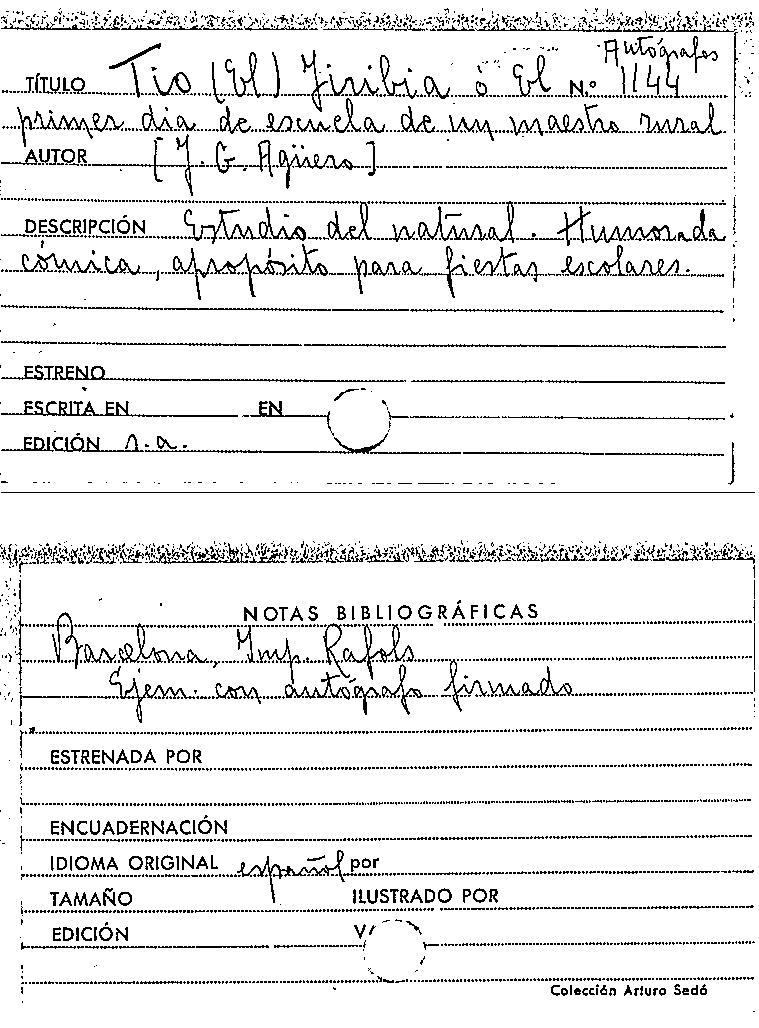 Autógrafos
TÍTULO Tio (El) Jiribia ó El N.º 1144
primer dia de escuela de un maestro rural
AUTOR [J. G. Agüero]
DESCRIPCIÓN Estudio del natural. Humorada
cómica, apropósito para fiestas escolares.
ESTRENO
ESCRITA EN EN
EDICIÓN s.a.
NOTAS BIBLIOGRÁFICAS
Barcelona, Imp. Rafols
Ejem. con autógrafo firmado
ESTRENADA POR
ENCUADERNACIÓN
IDIOMA ORIGINAL español por
TAMAÑO ILUSTRADO POR
EDICIÓN
Colección Arturo Sedó